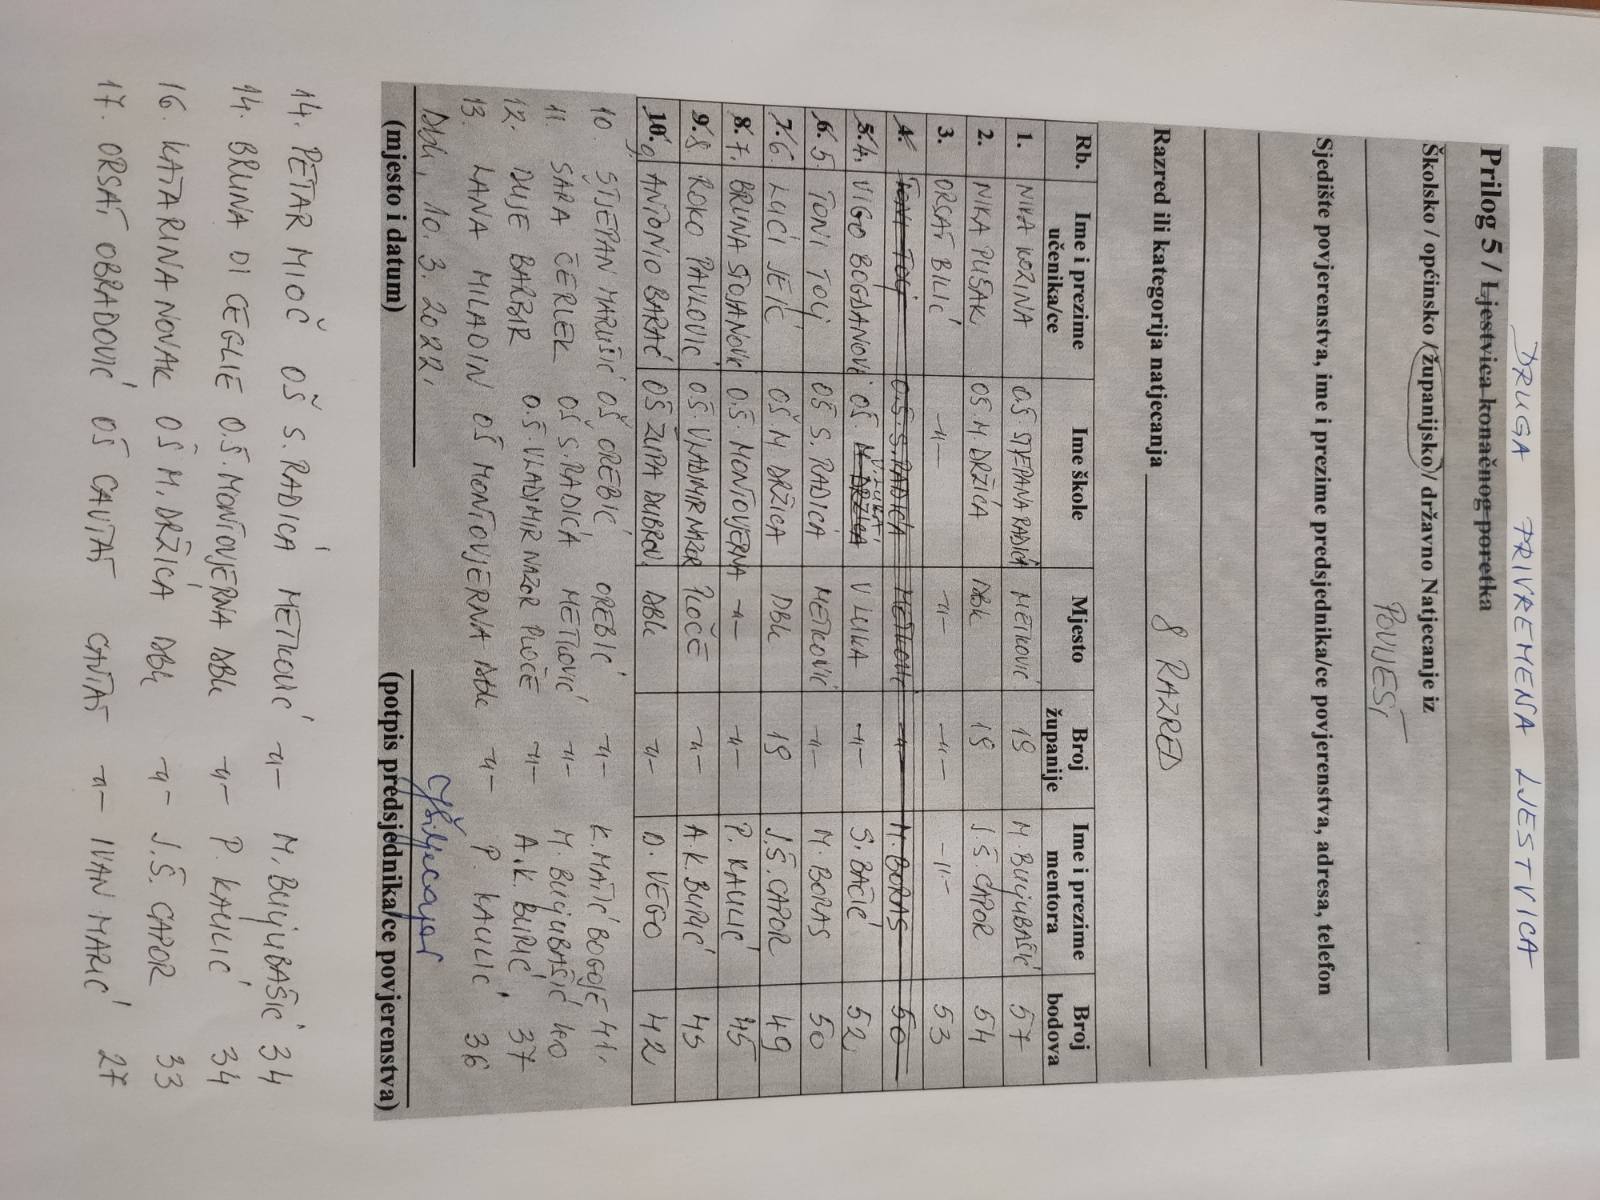 DRUGA PRIVREMENA LJESTVICA
Prilog 5 / Ljestvica konačnog poretka
Školsko / općinsko / županijsko / državno Natjecanje iz
POVIJEST
Sjedište povjerenstva, ime i prezime predsjednika/ce povjerenstva, adresa, telefon
Razred ili kategorija natjecanja 8 RAZRED
Rb. Ime i prezime učenika/ce Ime škole Mjesto Broj županije Ime i prezime mentora Broj bodova
1. NIKA KOZINA OŠ. STJEPANA RADIĆA METKOVIĆ 19 M. BULJUBAŠIĆ 57
2. NIKA PUŠAK OŠ. M. DRŽIĆA DBK 19 J. Š. CAPOR 54
3. ORSAT BILIĆ -11- -11- -11- -11- 53
4. TONI TOLJ O.Š. S. RADIĆA METKOVIĆ -11- M. BORAS 50
5. 4. VIGO BOGDANOVIĆ OŠ. M. DRŽIĆA V. LUKA V LUKA -11- S. BAČIĆ 52
6. 5. TONI TOLJ OŠ S. RADIĆA METKOVIĆ -11- M. BORAS 50
7. 6. LUCI JEIĆ OŠ M. DRŽIĆA DBK 19 J.Š. CAPOR 49
8. 7. BRUNA STOJANOVIĆ O.Š. MONTOVJERNA -11- -11- P. KAULIĆ 45
9. 8. ROKO PAVLOVIĆ OŠ. VLADIMIR NAZOR PLOČE -11- A.K. BURIĆ 43
10. 9. ANTONIO BARAĆ OŠ ŽUPA DUBROV. DBK -11- D. VEGO 42
10. STJEPAN MARUŠIĆ OŠ OREBIĆ OREBIĆ -11- K. MATIĆ BOGOJE 41.
11. SARA ČERLEK OŠ S. RADIĆA METKOVIĆ -11- M. BULJUBAŠIĆ 40
12. DUJE BARBIR O.Š. VLADIMIR NAZOR PLOČE -11- A.K. BURIĆ 37
13. LANA MILADIN OŠ MONTOVJERNA DBK -11- P. KAULIĆ 36
Dbk, 10. 3. 2022.
(mjesto i datum) (potpis predsjednika/ce povjerenstva)
14. PETAR MIOČ OŠ S. RADIĆA METKOVIĆ -11- M. BULJUBAŠIĆ 34
14. BRUNA DI CEGLIE O.Š. MONTOVJERNA DBK -11- P. KAULIĆ 34
16. KATARINA NOVAK OŠ M. DRŽIĆA DBK -11- J.Š. CAPOR 33
17. ORSAT OBRADOVIĆ OŠ CAVTAT CAVTAT -11- IVAN MARIĆ 27